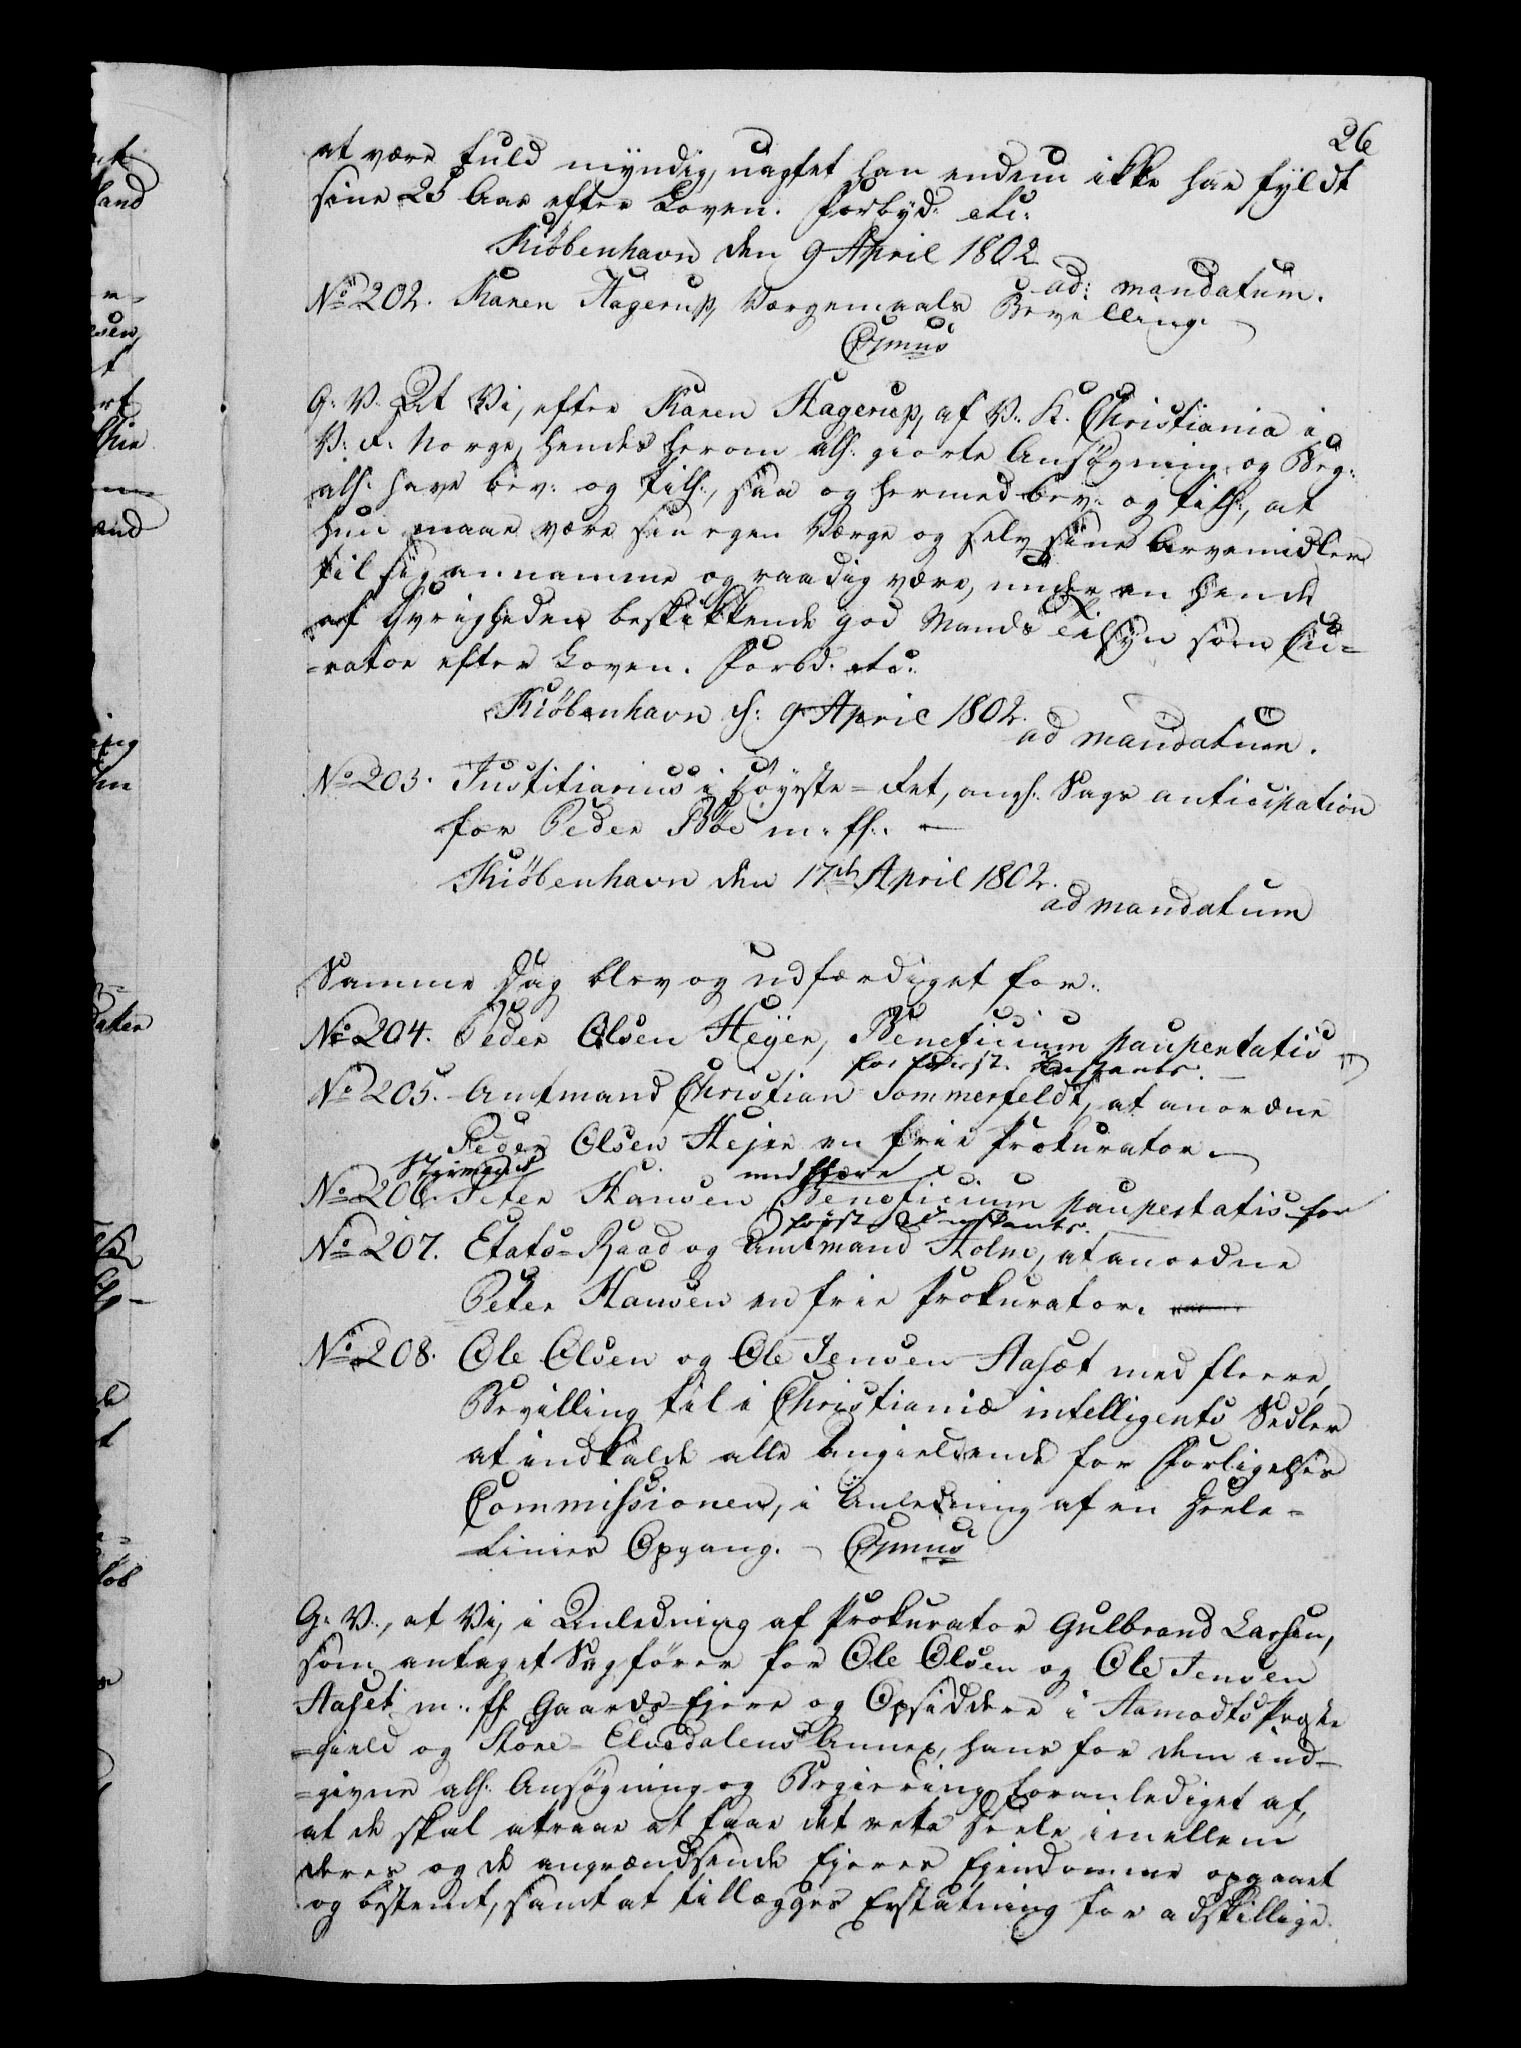 26
at være fuld myndig, uagtet han endnu ikke har fyldt
sine 25 Aar efter Loven. Forbyd: etc:
Kiöbenhavn den 9 April 1802.
ad: mandatum.
No 202. Karen Hagerup, Værgemaals Bevilling.
G: V: At Vi, efter Karen Hagerup, af V: K: Christiania i
V: R: Norge, hendes herom allr: giorte Ansøgning og Beg:
allr: have bev: og till:, saa og hermed bev: og till:, at
hun maae være sin egen Værge og selv sine Arvemidler
til sig annamme og raadig være, under en hende
af Øvrigheden beskikkende god Mands Tilsyn som Cu-
-rator efter Loven. Forbd: etc:
Kiöbenhavn d: 9 April 1802.
ad mandatum.
No 203. Justitiarius i Höyste-Ret, angl: Sags anticipation
for Peder Böe m: fl:
Kiöbenhavn den 17de April 1802.
ad mandatum
Samme Dag blev og udfærdiget for:
No 204. Peder Olsen Heyer, Beneficium paupertatis
for første Instants.
No 205. Amtmand Christian Sommerfeldt, at anordne
Peder Olsen Hejer en frie Prokurator.
No 206. Styrmand Peter Hansen med flere Beneficium paupertatis for
første Instants.
No 207. Etats-Raad og Amtmand Holm, at anordne
Peter Hansen en frie Prokurator.
No 208. Ole Olsen og Ole Jensen Aaset med fleere,
Bevilling til i Christianiæ intelligents Sedler
at indkalde alle Angieldende for Forligelses
Commissionen, i Anledning af en Deele-
Linies Opgang.
G: V:, at Vi, i Anledning af Prokurator Gulbrand Larsen,
som antaget Sagfører for Ole Olsen og Ole Jensen
Aaset m: fl Gaards Ejere og Opsiddere i Aamodts Præste
-gield og Store-Elvedalens Annex, hans for dem ind-
-givne allr: Ansøgning og Begiering foranlediget af,
at de skal atraae at faae det rette Deele imellem
deres og de angrændsende Ejeres Ejendomme opgaaet
og bestemt, samt at tillægges Erstatning for adskillige